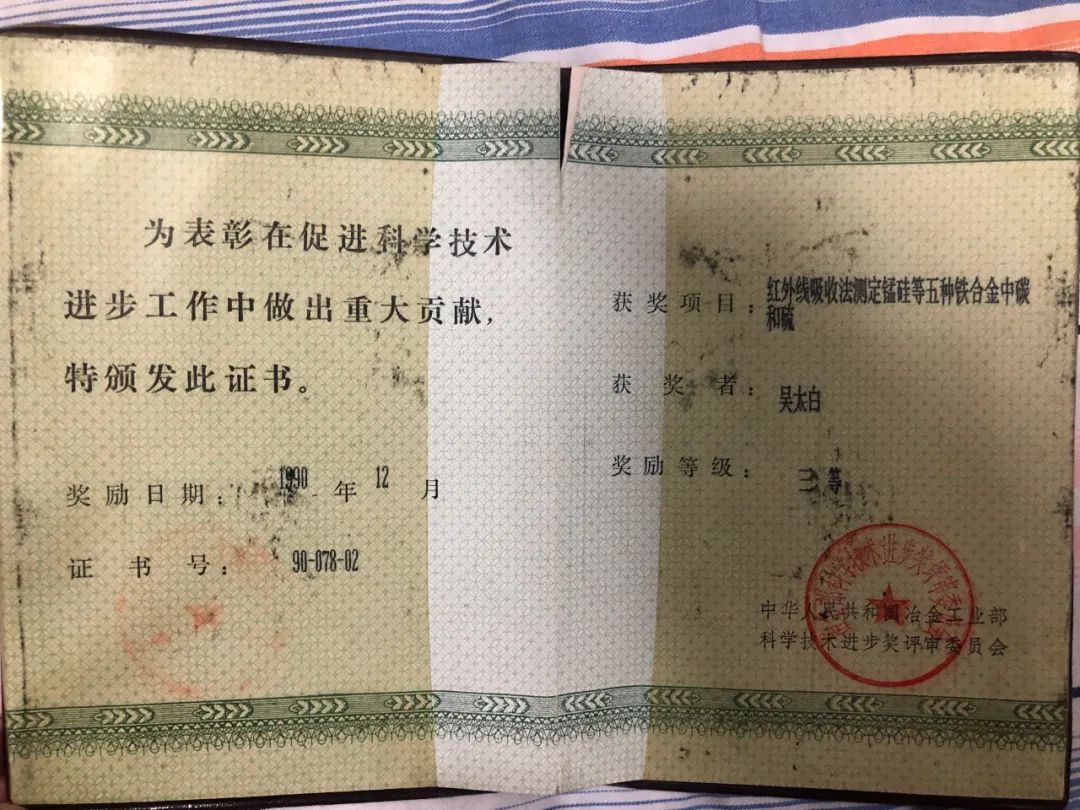 为表彰在促进科学技术
进步工作中做出重大贡献,
特颁发此证书。
奖励日期: 1990 年 12 月
证书号: 90-078-02
获奖项目: 红外线吸收法测定锰硅等五种铁合金中碳
和硫
获奖者: 吴太白
奖励等级: 三等
中华人民共和国冶金工业部
科学技术进步奖评审委员会